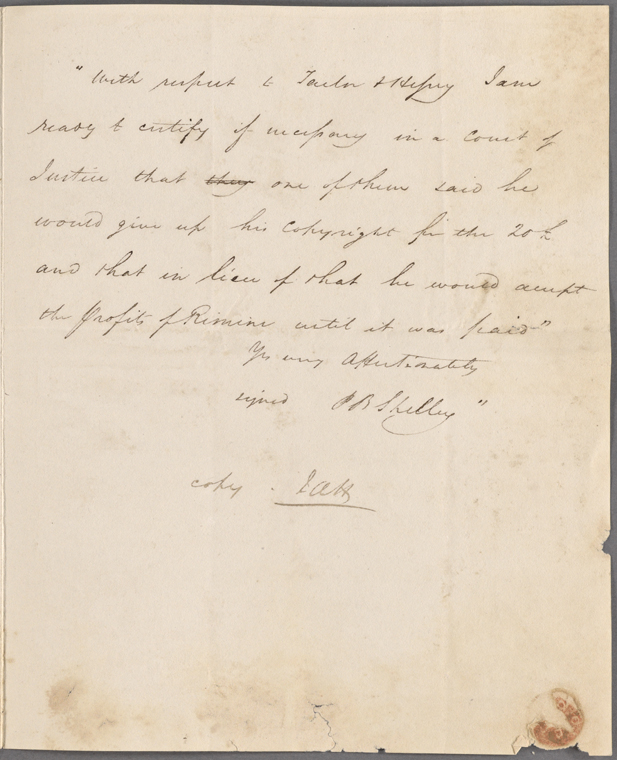 "With respect to Taylor & Hessey I am
ready to certify if necessary in a Court of
Justice that they one of them said he
would give up his Copyright for the 20£
and that in lieu of that he would accept
the Profits of Rimini until it was paid"
Yrs very Affectionately
signed P B Shelley"
copy.